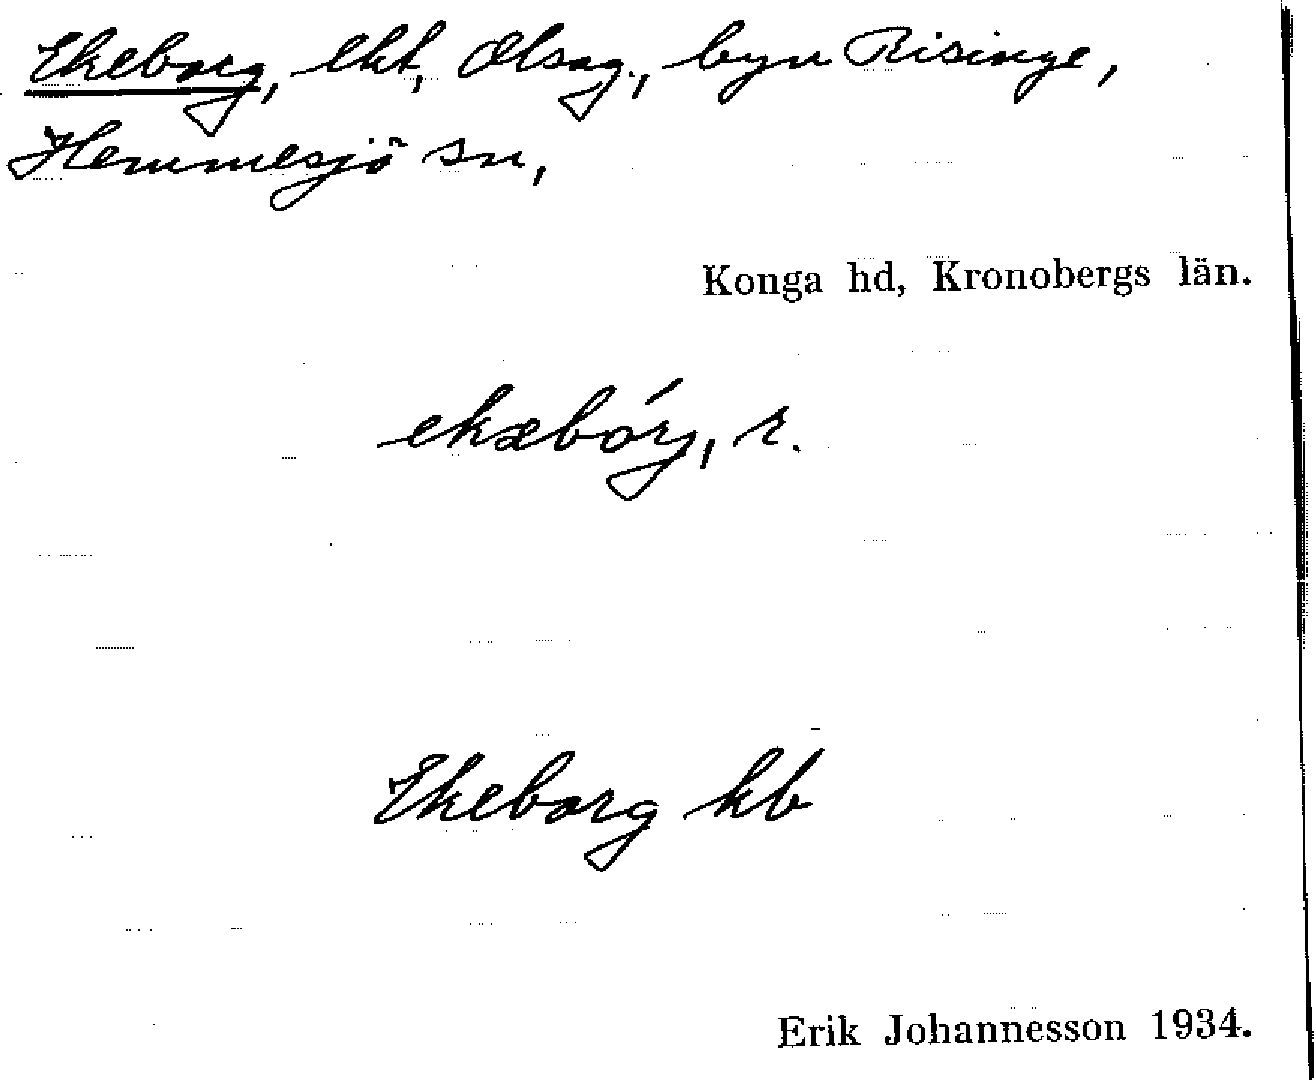 Ekeborg, lht, Olsag., byn Risinge,
Hemmesjö sn,
Konga hd, Kronobergs län.
ekæbórj, r.
Ekeborg kb
Erik Johannesson 1934.